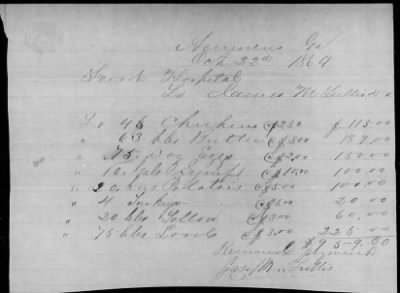 Americus Ga
Oct 22nd 1864
Hospital
To James M Tullis Dr
To 46 Chickens @ 2.50 $115.00
" 63 lbs Butter @ 3.00 189.00
" 75 Doz Eggs @ 2.00 150.00
" 10 Gals @ 10.00 100.00
" 20 bus Potatoes @ 5.00 100.00
" 4 Turkeys @ 5.00 20.00
" 20 lbs Tallow @ 3.00 60.00
" 75 lbs Lard @ 3.00 225.00
$959.00
Received payment
Jas M Tullis